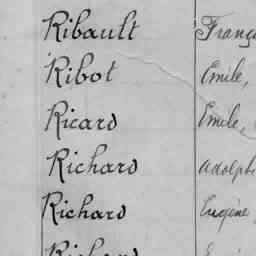 Ribault
Ribot Emile,
Ricard Emile,
Richard Adolphe
Richard Eugène
Richard